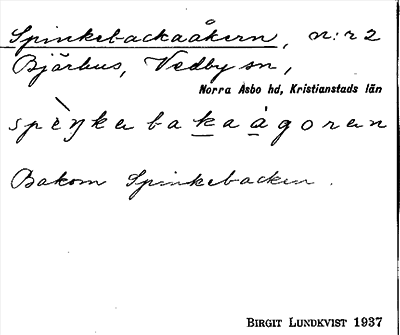 Spinkebackaåkern, n:r 2
Bjärhus, Vedby sn,
Norra Åsbo hd, Kristianstads län
spèŋkabakaågoran
Bakom Spinkebacken.
BIRGIT LUNDKVIST 1937